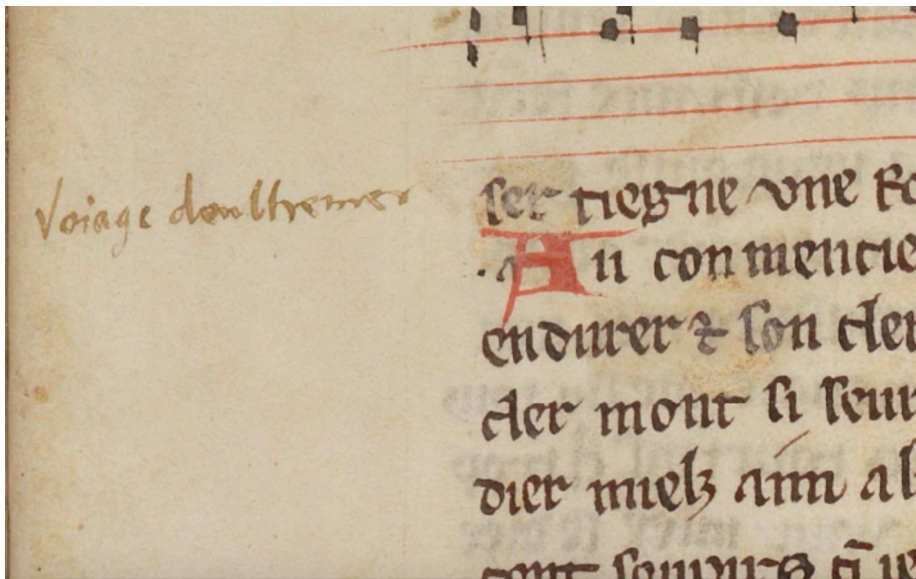 Voiage doultremer
ser tiegne vne
Au conmencie
endurer ⁊ son
cler mont si seur
dier mielz aim